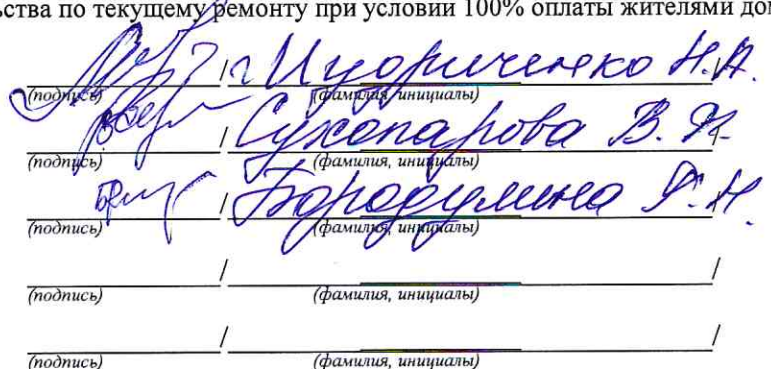 ства по текущему ремонту при условии 100% оплаты жителями дом
/ Н.А. /
(подпись) (фамилия, инициалы)
/ Сухопарова В. /
(подпись) (фамилия, инициалы)
/ Бородулина Н. /
(подпись) (фамилия, инициалы)
/ /
(подпись) (фамилия, инициалы)
/ /
(подпись) (фамилия, инициалы)